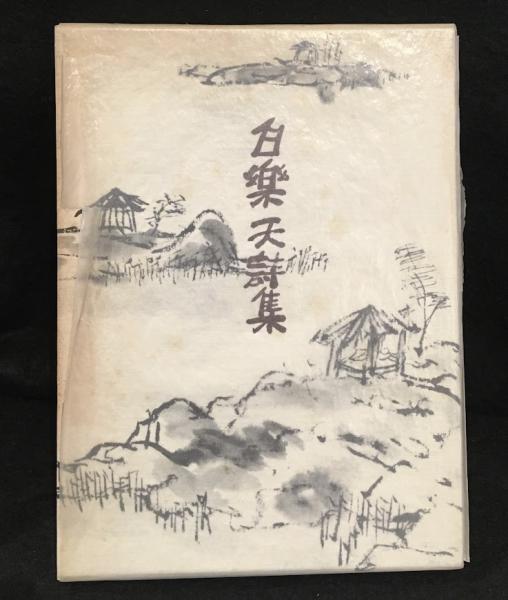 白樂天詩集